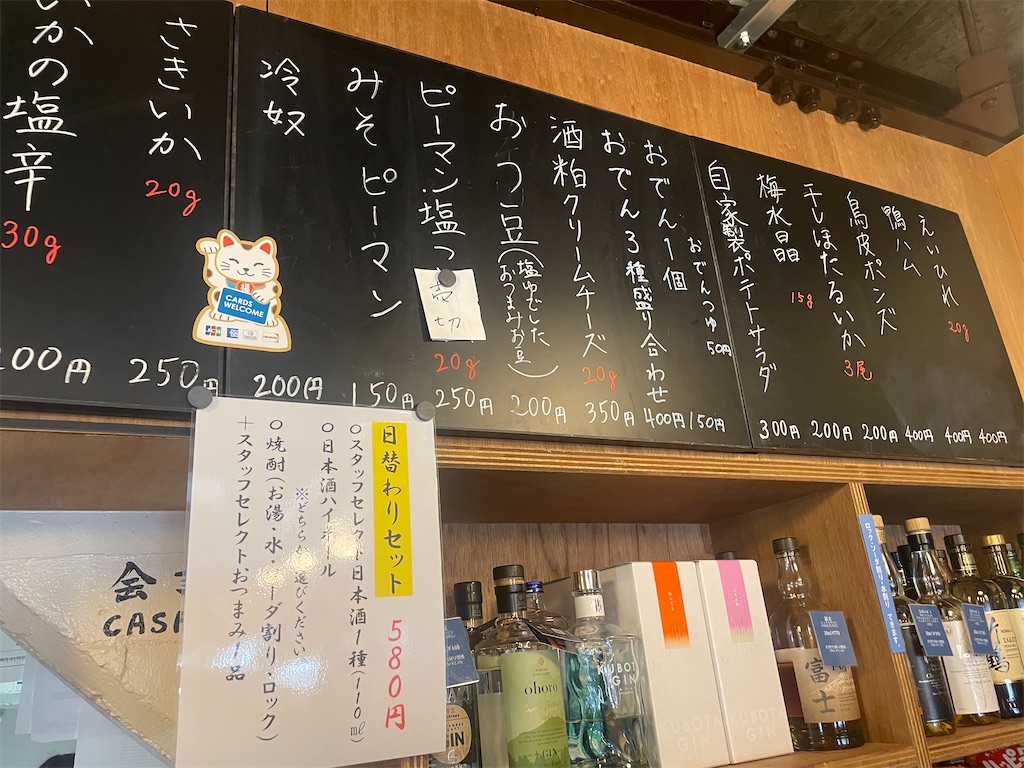 えいひれ 20g 400円
鴨ハム 400円
鳥皮ポンズ 400円
干しほたるいか 3尾 200円
梅水晶 15g 200円
自家製ポテトサラダ 300円
おでんつゆ 50円
おでん1個 150円
おでん3種盛り合わせ 400円
酒粕クリームチーズ 20g 350円
おつ豆(塩ゆでした
おつまみお豆) 200円
ピーマン塩つ 20g 250円
売切
みそピーマン 150円
冷奴 200円
さきいか 20g 250円
いかの塩辛 30g 200円
CARDS
WELCOME
JCB
日替わりセット 580円
○スタッフセレクト日本酒1種(110㎖)
○日本酒ハイボール
※どちらか選びください
○焼酎(お湯・水・ソーダ割り・ロック)
+スタッフセレクトおつまみ1品
会
CASH
ohoro
GIN
GIN
KUBOTA
GIN
KUBOTA
GIN
KUBOTA
GIN
富士
ロック・ソーダ割り・水割り できます。
鶴